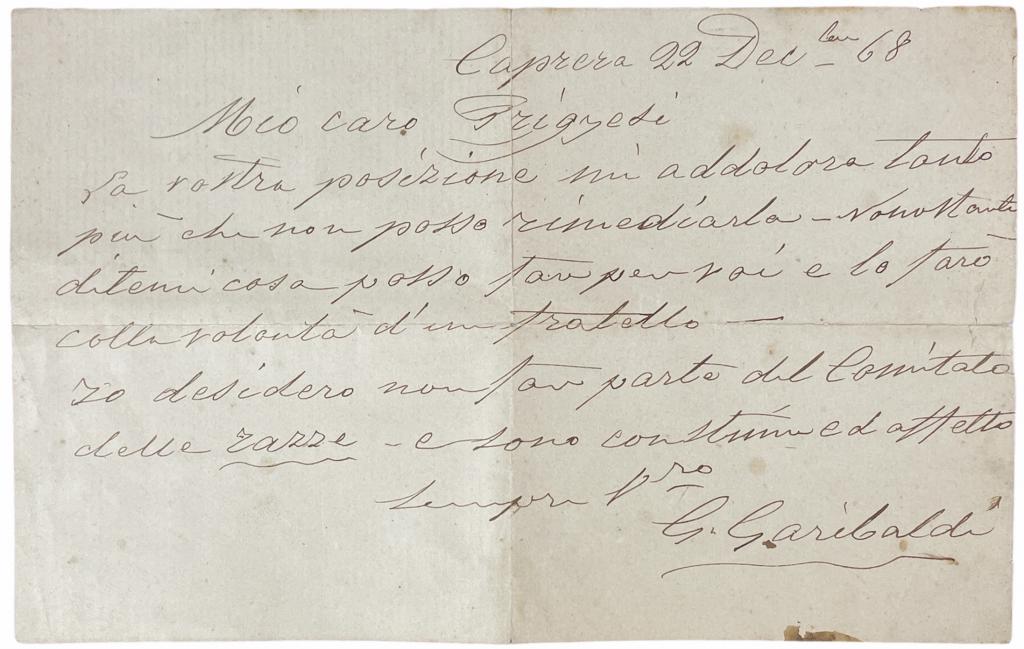 Caprera 22 Dec.bre 68
Mio caro Prigyesi
La vostra posizione mi addolora tanto
più che non posso rimediarla - Nonostante
ditemi cosa posso far per voi e lo farò
colla volontà d'un fratello —
Io desidero non far parte del Comitato
delle razze - e sono con stima ed affetto
sempre Vro
G. Garibaldi